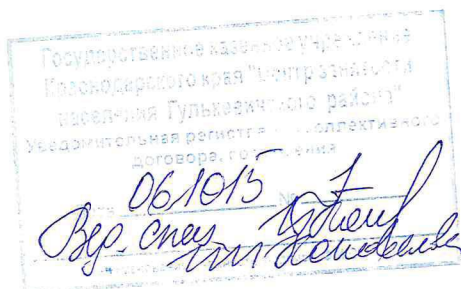 Государственное казенное учреждение
Краснодарского края "Центр занятости
населения Гулькевичского района"
Уведомительная регистрация коллективного
договора, соглашения
061015 № 1
Вед. спец.